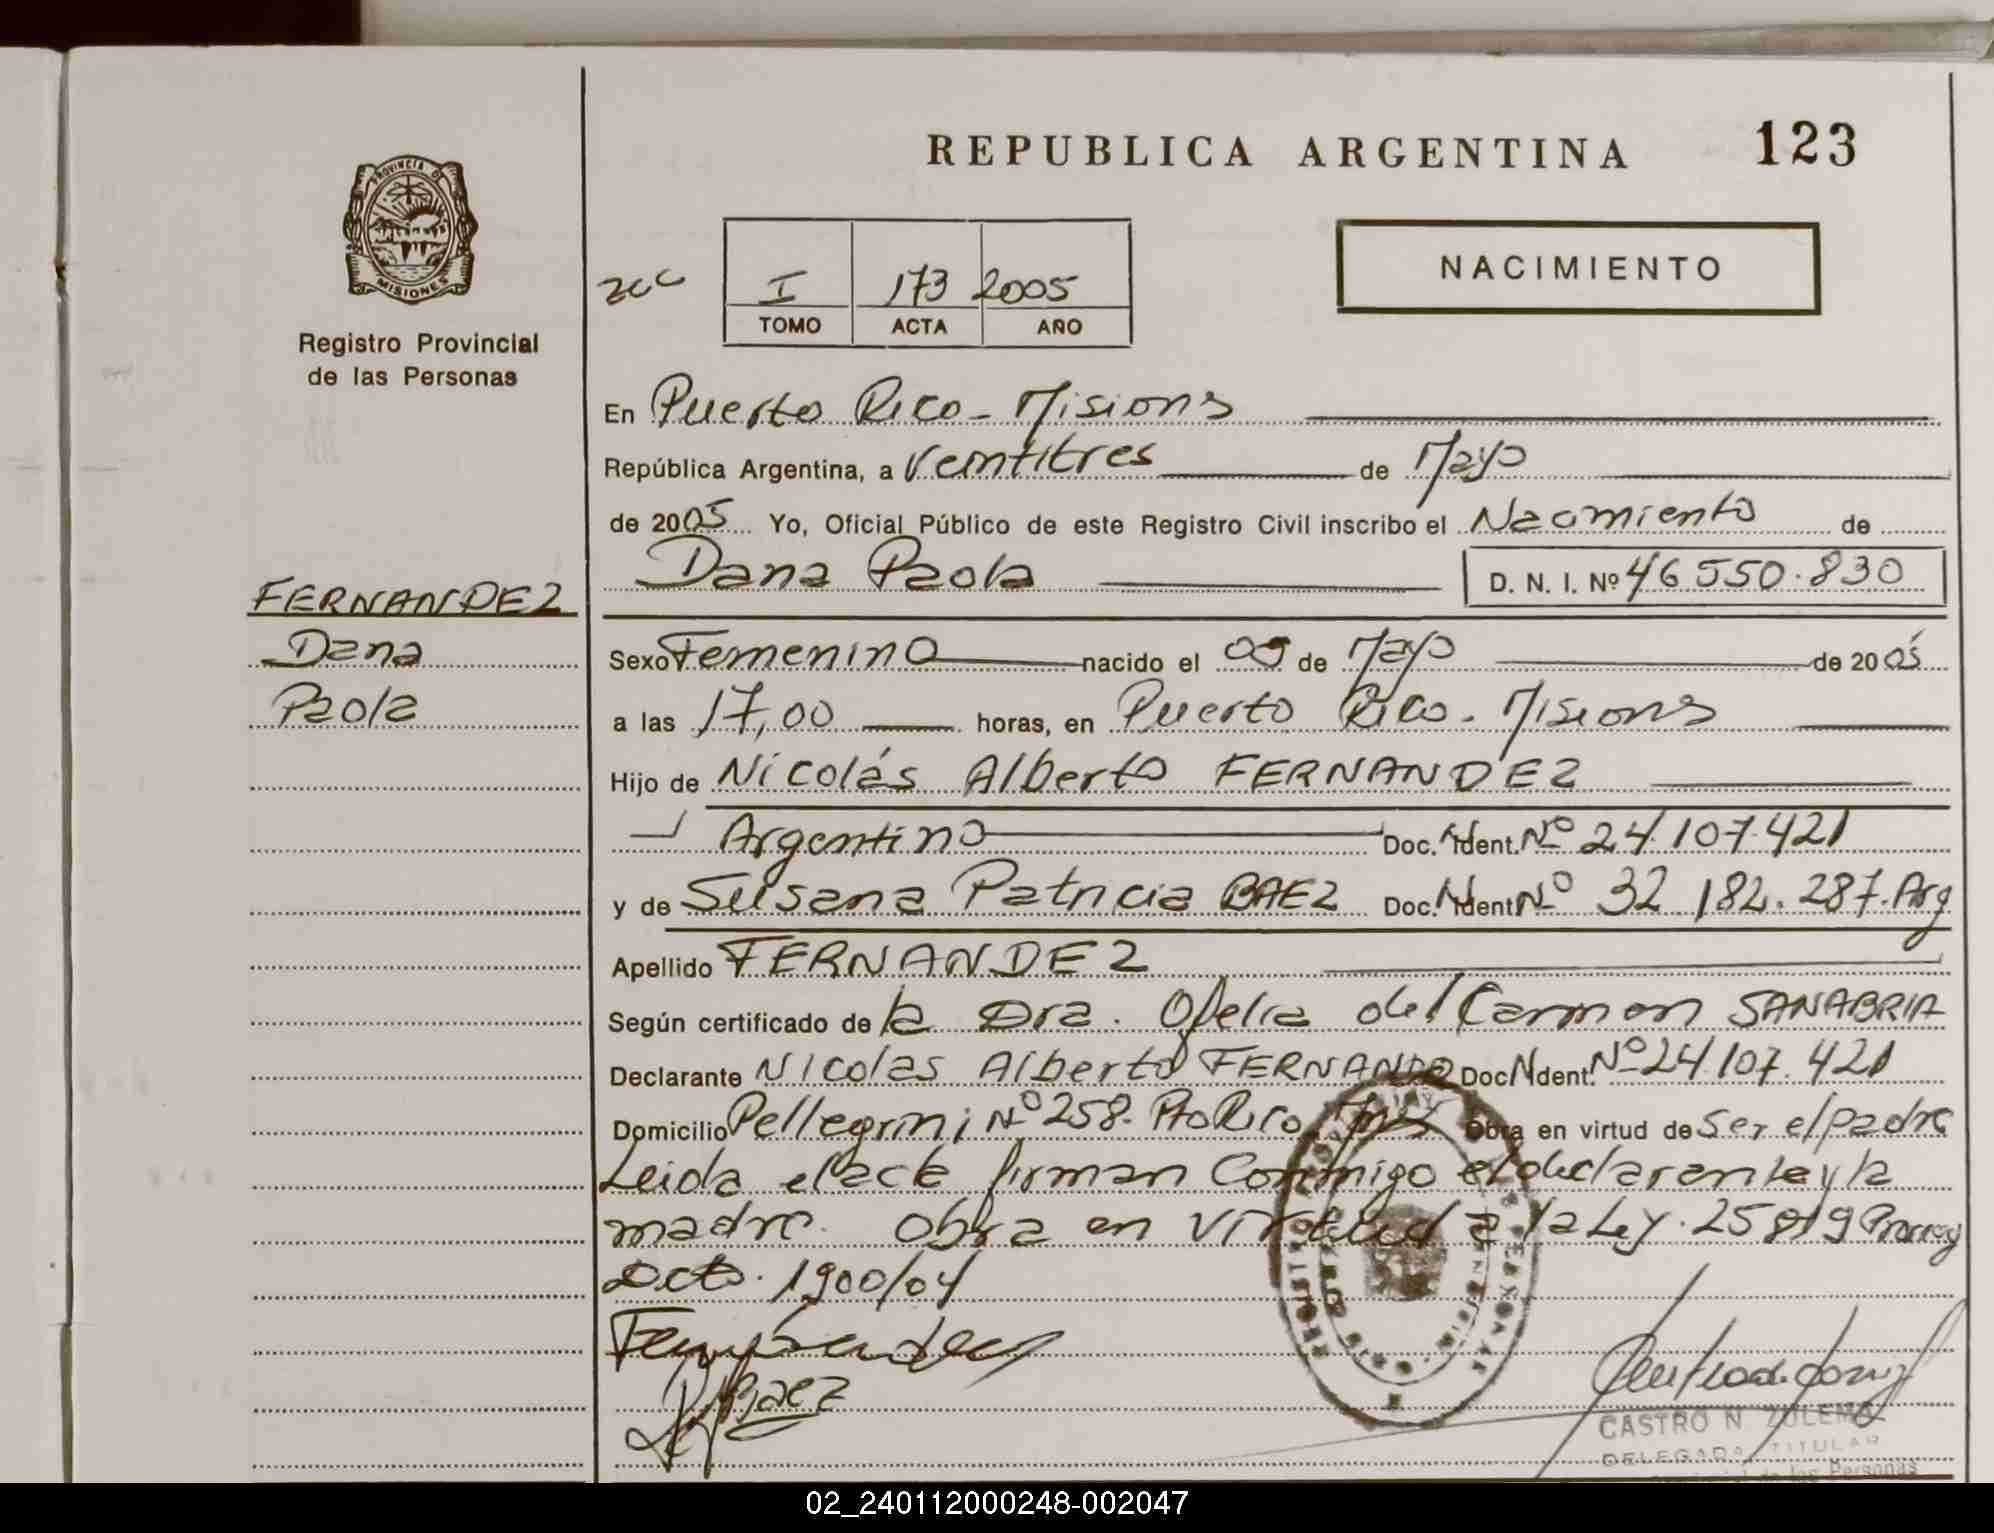 REPUBLICA ARGENTINA 123
PROVINCIA DE
MISIONES
Registro Provincial
de las Personas
I 173 2005
TOMO ACTA AÑO
NACIMIENTO
En Puerto Rico - Misiones
República Argentina, a Veintitres de Mayo
de 2005 Yo, Oficial Público de este Registro Civil inscribo el Nacimiento de
Dana Paola D. N. I. Nº 46 550.830
FERNANDEZ
Dana
Paola
Sexo Femenino nacido el 05 de Mayo de 2005
a las 17,00 horas, en Puerto Rico - Misiones
Hijo de Nicolás Alberto FERNANDEZ
Argentino Doc. Ident. Nº 24.107.421
y de Susana Patricia BAEZ Doc. Ident Nº 32 182.287. Arg
Apellido FERNANDEZ
Según certificado de la Dra. Ofelia del Carmen SANABRIA
Declarante Nicolas Alberto FERNANDEZ Doc Ident. Nº 24.107.421
Domicilio Pellegrini Nº 258. Pto Rico Mnes Obra en virtud de ser el padre
Leida el acta firman Conmigo el declarante y la
madre. Obra en virtud a la Ley. 25819 Prorrog
Dcto. 1900/04
Fernandez
Baez
CASTRO N ZULEMA
DELEGADA TITULAR
de las Personas
02_240112000248-002047